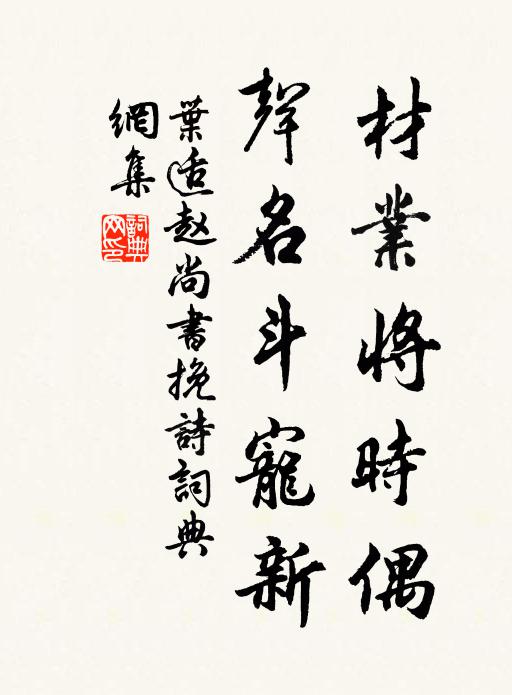 材業將時偶
聲名斗寵新
葉适赵尚書挽詩詞典
網集
詞典
网印